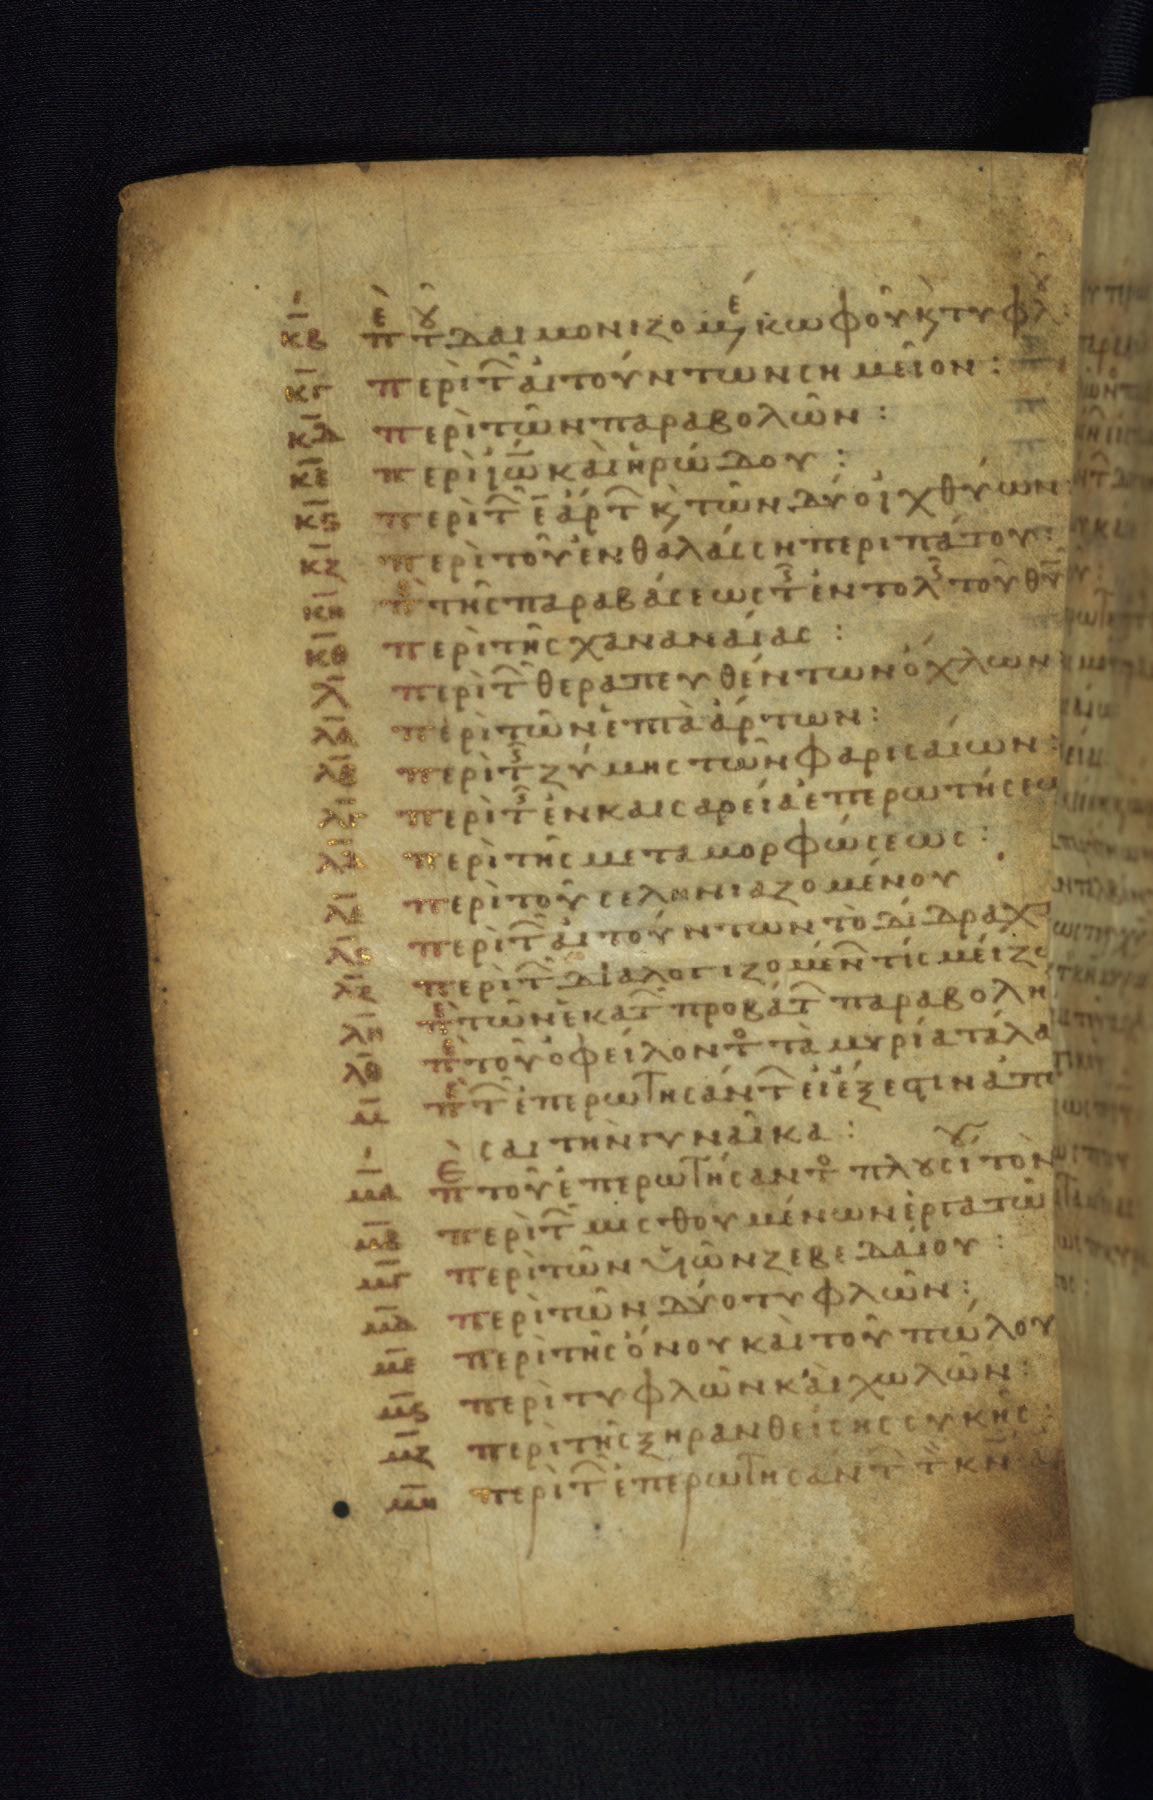 κβ πε του δαιμονιζομε κωφοῦ κ τυφλου
κγ περὶ τ αἰτούντων σημεῖον :
κδ περὶ τῶν παραβολῶν :
κε περὶ ἰω καὶ ἡρώδου :
κϛ περὶ τ ε ἄρτ κ τῶν δύο ἰχθύων
κζ περὶ τοῦ ἐν θαλάσσῃ περιπάτου :
κη πε τῆς παραβάσεως τ ἐντολ τοῦ θυ
κθ περὶ τῆς χαναναίας :
λ περὶ τ θεραπευθέντων ὄχλων
λα περὶ τῶν ἑπτὰ ἄρτων :
λβ περὶ τ ζύμης τῶν φαρισαίων :
λγ περὶ τ ἐν καισαρεία ἐπερωτήσεω
λδ περὶ τῆς μεταμορφώσεως :
λε περὶ τοῦ σεληνιαζομένου
λϛ περὶ τ αἰτούντων τὸ δίδραχ
λζ περὶ τ διαλογιζομέν τίς μείζω
λη πε τῶν ἑκατ προβάτ παραβολη
λθ πε τοῦ ὀφείλοντο τὰ μυρία τάλα
μ πε τ ἐπερωτησάντ εἰ ἔξεστιν ἀπο
σαι τὴν γυναῖκα :
μα πε τοῦ ἐπερωτησαντο πλουσίου τὸν
μβ περὶ τ μισθουμένων ἐργατῶ
μγ περὶ τῶν υἱῶν ζεβεδαίου :
μδ περὶ τῶν δύο τυφλῶν :
με περὶ τῆς ὄνου καὶ τοῦ πώλου
μϛ περὶ τυφλῶν καὶ χωλῶν :
μζ περὶ τῆς ξηρανθείσης συκῆς :
μη περὶ τ ἐπερωτησάντ τ κν